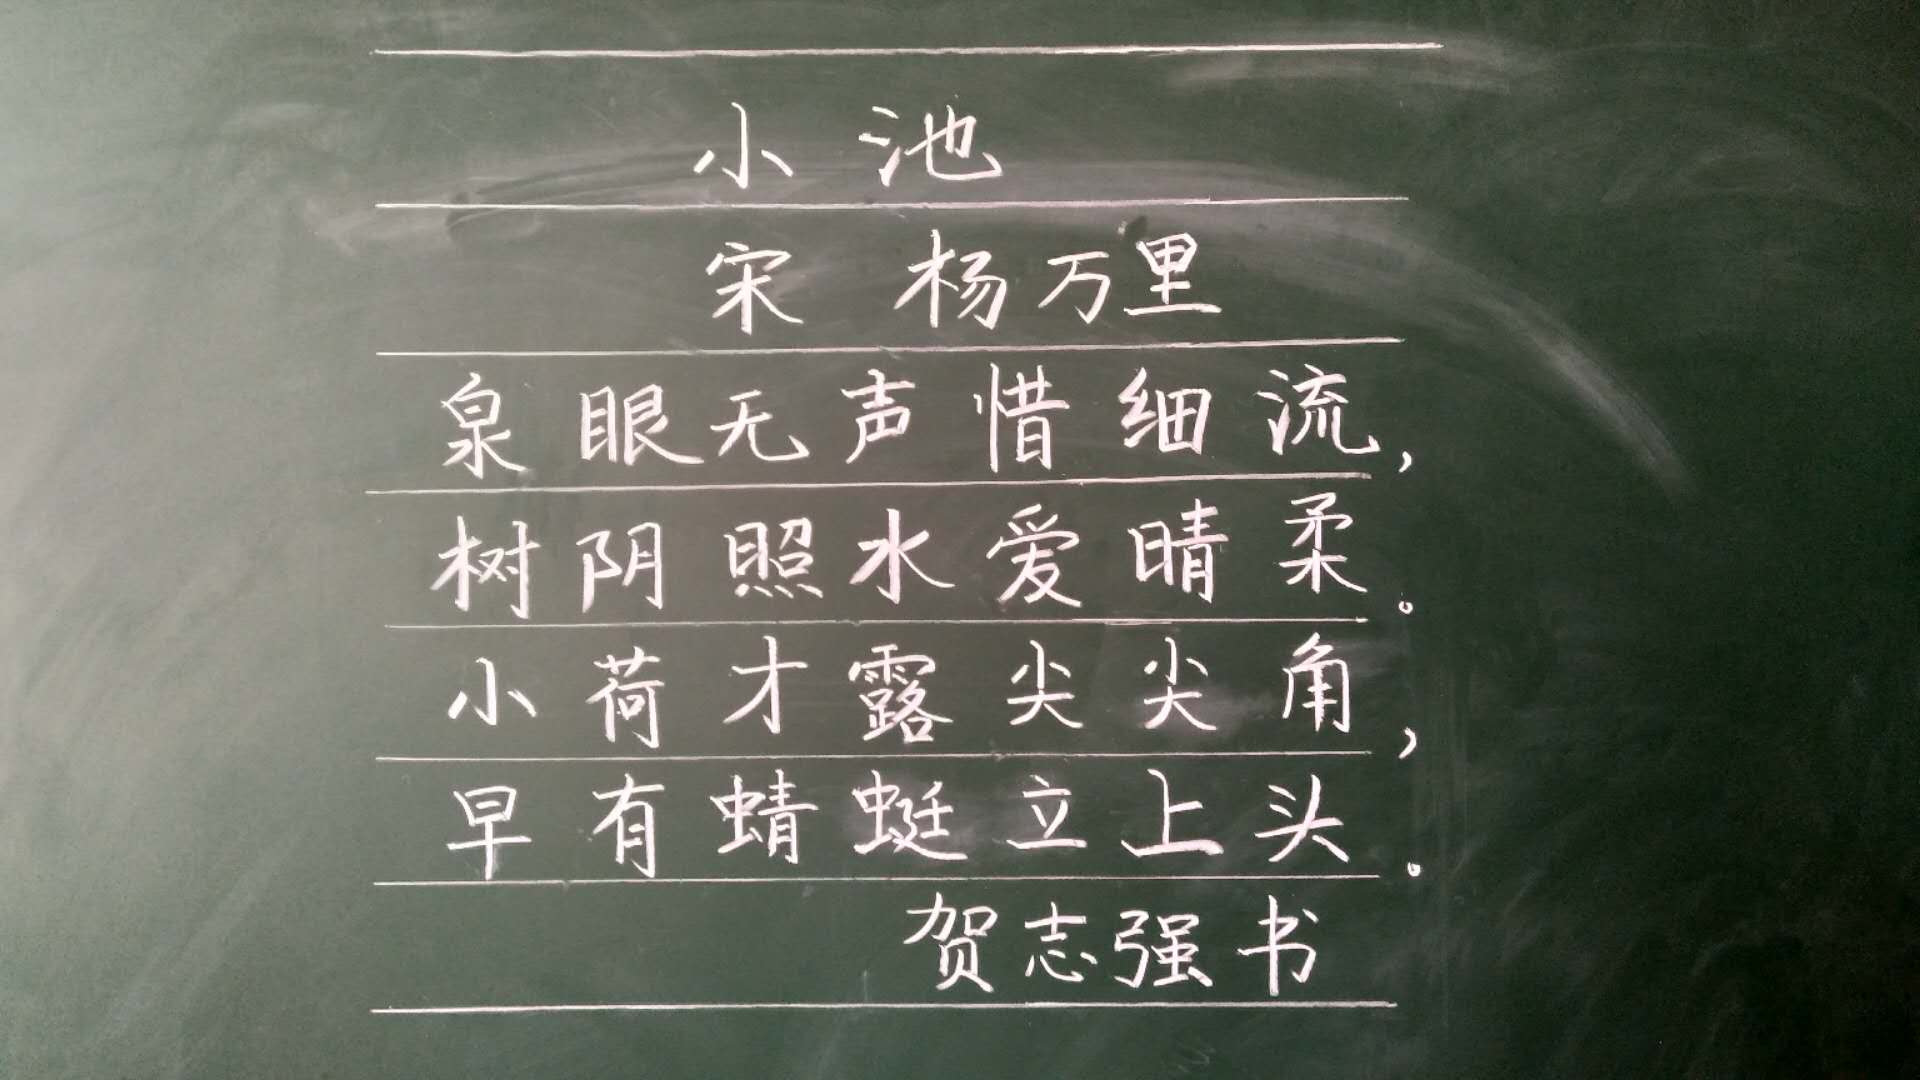 小池
宋 杨万里
泉眼无声惜细流，
树阴照水爱晴柔。
小荷才露尖尖角，
早有蜻蜓立上头。
贺志强书